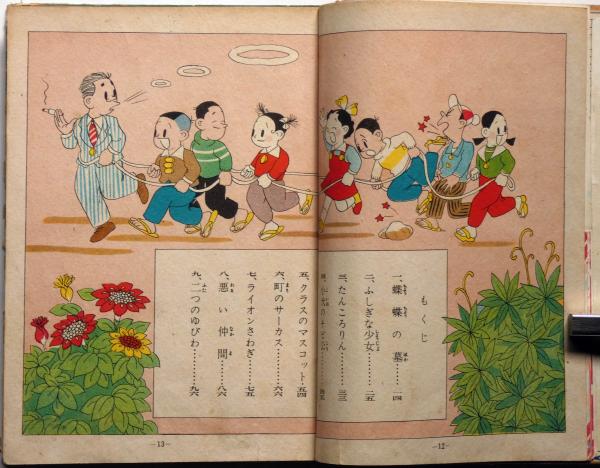 もくじ
一、蝶蝶の墓………一四
二、ふしぎな少女………二五
三、たんころりん………三三
五、クラスのマスコット…五四
六、町のサーカス………六六
七、ライオンさわぎ………七五
八、悪い仲間………八六
九、二つのゆびわ………九六
—12—
—13—